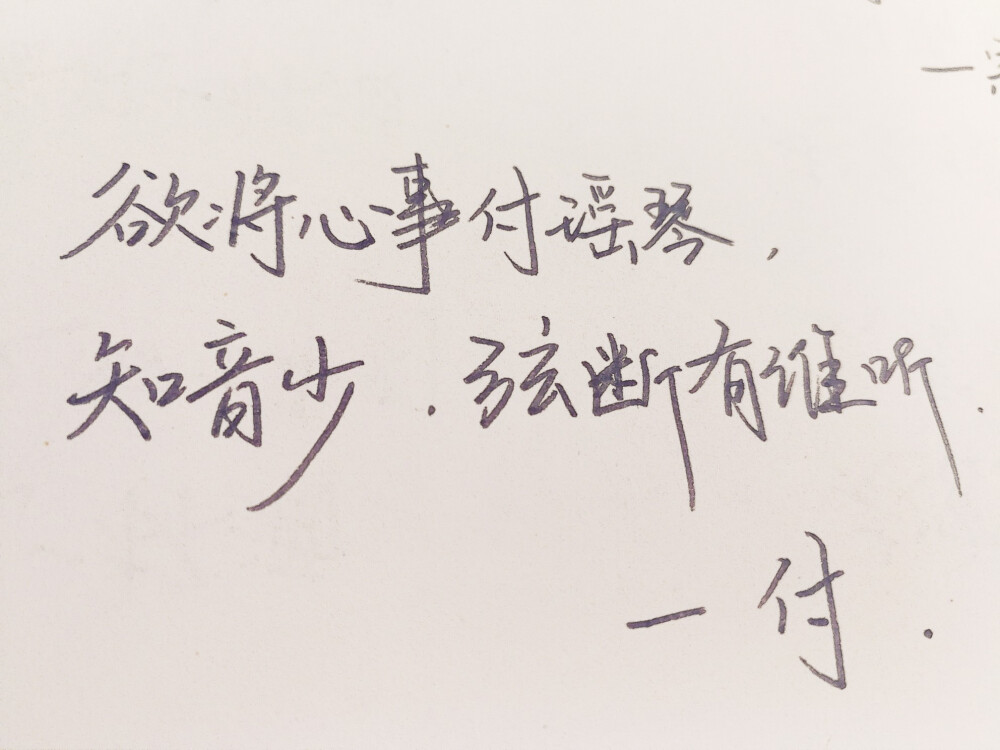 欲将心事付瑶琴，
知音少．弦断有谁听．
一付．